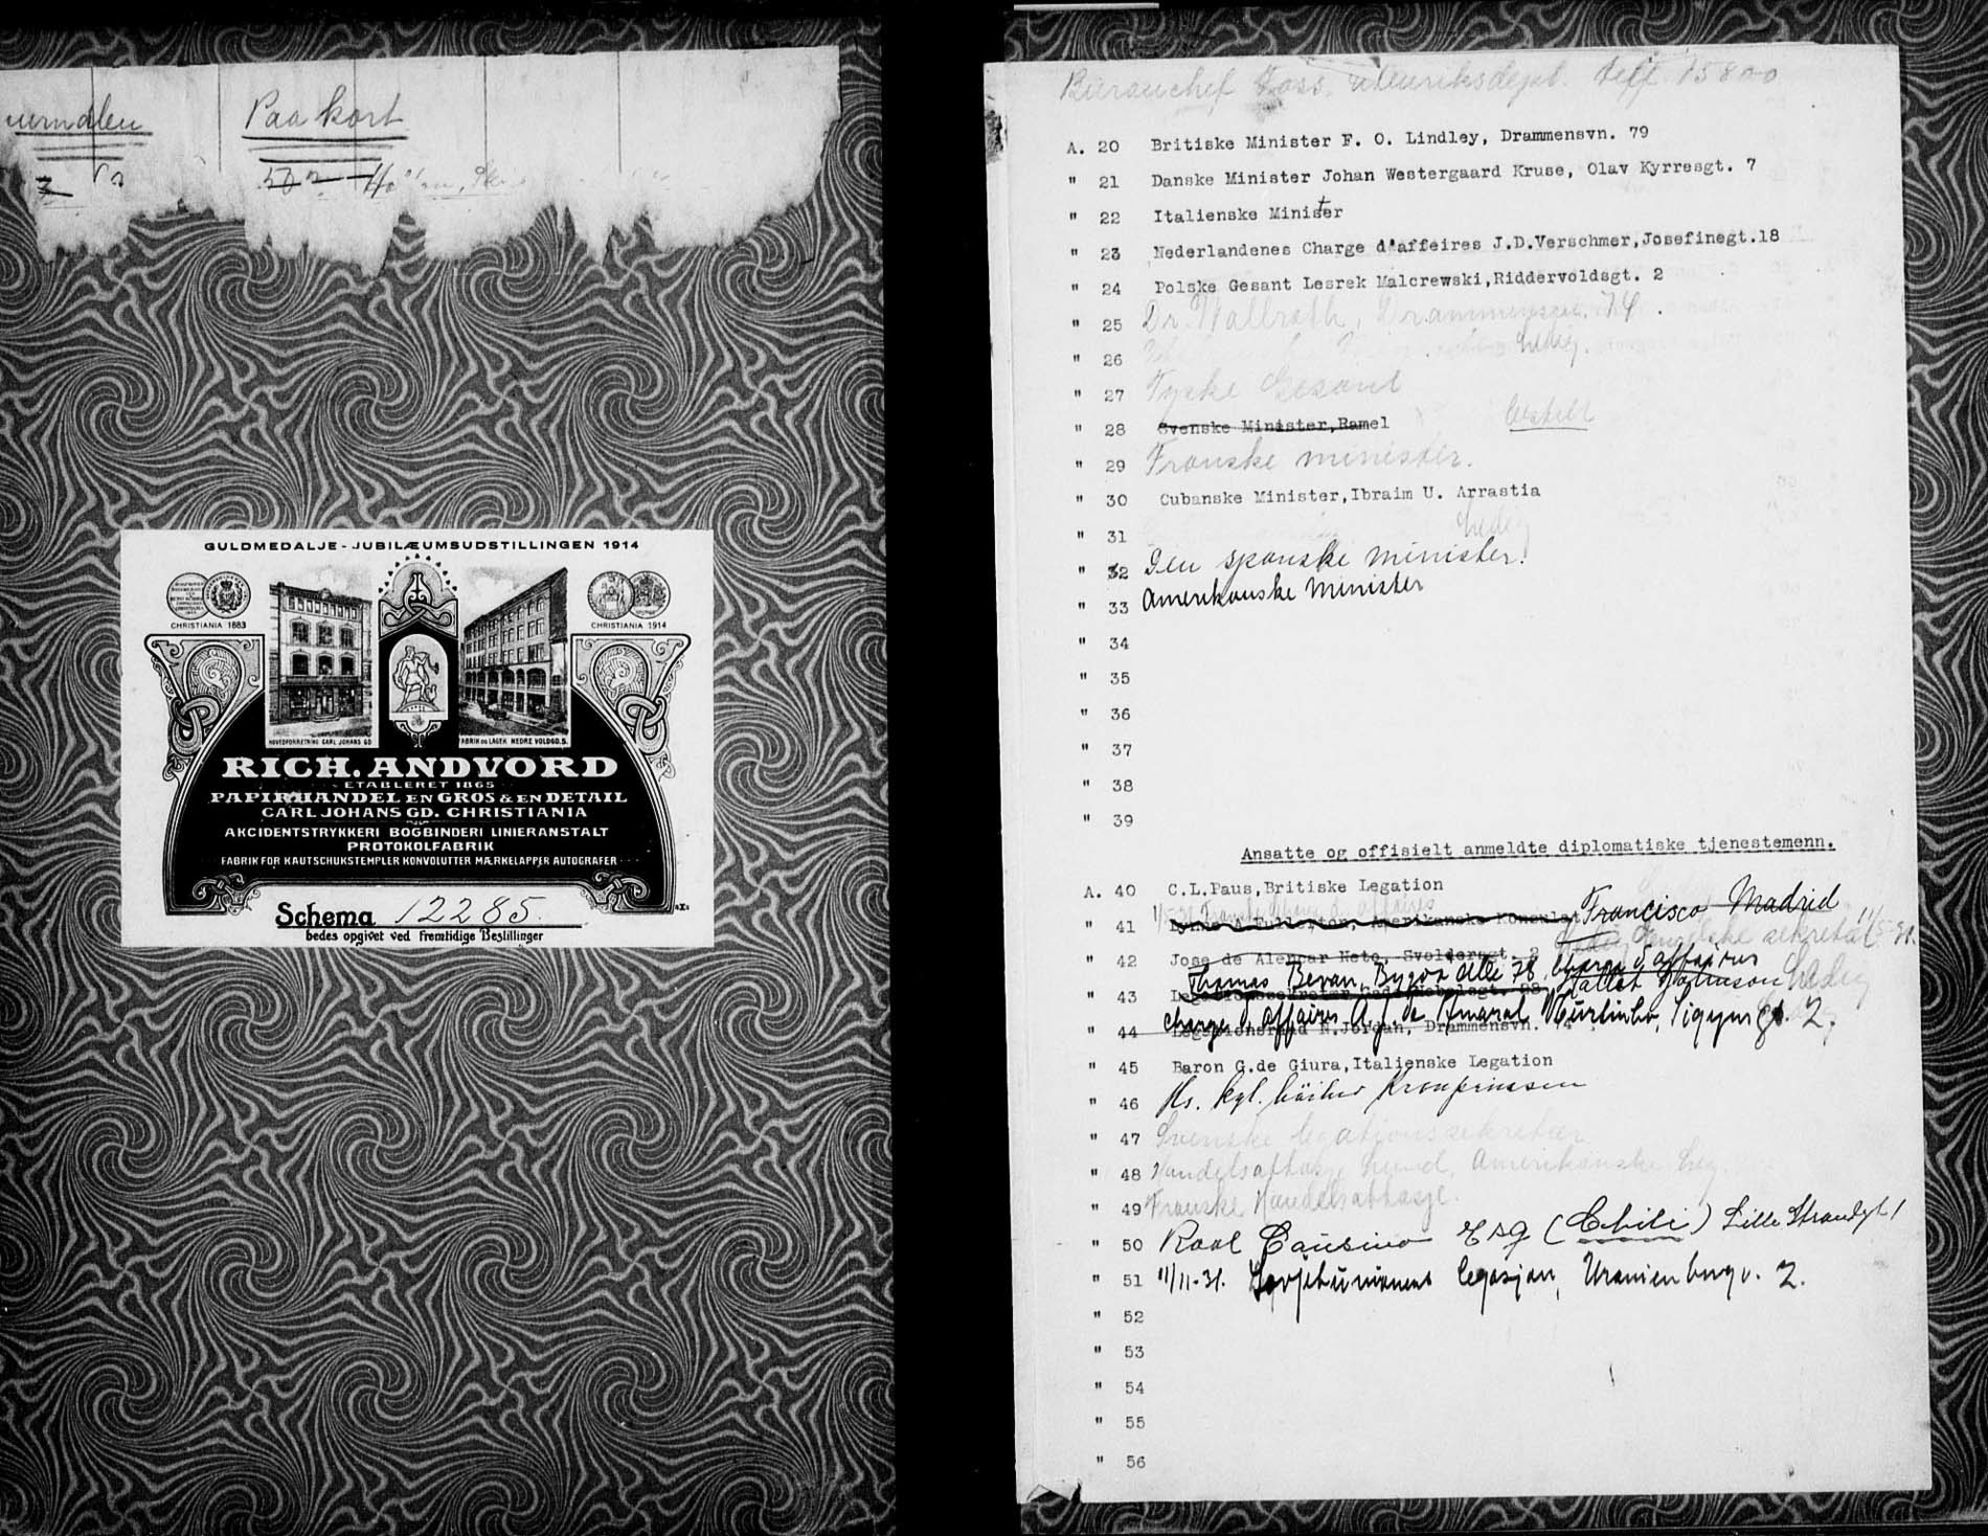 Paa kort
GULDMEDALJE - JUBILÆUMSUDSTILLINGEN 1914
CHRISTIANIA 1883
CHRISTIANIA 1914
HOVEDFORRETNING CARL JOHANS GD
FABRIK OG LAGER NEDRE VOLDGD. 5.
RICH. ANDVORD
ETABLERET 1865
PAPIRHANDEL EN GROS & EN DETAIL
CARL JOHANS GD. CHRISTIANIA
AKCIDENTSTRYKKERI BOGBINDERI LINIERANSTALT
PROTOKOLFABRIK
FABRIK FOR KAUTSCHUKSTEMPLER KONVOLUTTER MÆRKELAPPER AUTOGRAFER
Schema 12285.
bedes opgivet ved fremtidige Bestillinger
Bureauchef Utenriksdept. telf 15800
A. 20 Britiske Minister F. O. Lindley, Drammensvn. 79
" 21 Danske Minister Johan Westergaard Kruse, Olav Kyrresgt. 7
" 22 Italienske Minister
" 23 Nederlandenes Charge d'affeires J.D.Verschmer,Josefinegt.18
" 24 Polske Gesant Lesrek Malcrewski,Riddervoldsgt. 2
" 25 Dr. Wallroth, Drammensvn. 74.
" 26 Ledig.
" 27 Tyske Gesant
" 28 Svenske Minister,Ramel
" 29 Franske minister.
" 30 Cubanske Minister,Ibraim U. Arrastia
" 31 Ledig
" 32 Den spanske minister.
" 33 Amerikanske minister
" 34
" 35
" 36
" 37
" 38
" 39
Ansatte og offisielt anmeldte diplomatiske tjenestemenn.
A. 40 C.L.Paus,Britiske Legation
" 41 Amerikanske Konsulat Francisco Madrid
" 42 Jose de Alencar Neto, Svoldergt. 2
Thomas Bevan, Bygdø alle 78 Charge d'affaires
" 43 Ledig
Charge d'affaires A. J. de Amaral Murtinho, 2.
" 44 Legationsraad N.Jorgan, Drammensvn. 74
" 45 Baron G.de Giura,Italienske Legation
" 46 Hs. kgl. høihet Kronprinsen
" 47 Svenske legationssekretær
" 48 Handelsattasje Lund, Amerikanske Leg.
" 49 Franske Handelsattasje.
" 50 Raol Cousino Esq (Chili) Lille Strandgt 1
" 51 11/11-31. Sovjetunionens legasjon, Uranienburgv. 2.
" 52
" 53
" 54
" 55
" 56